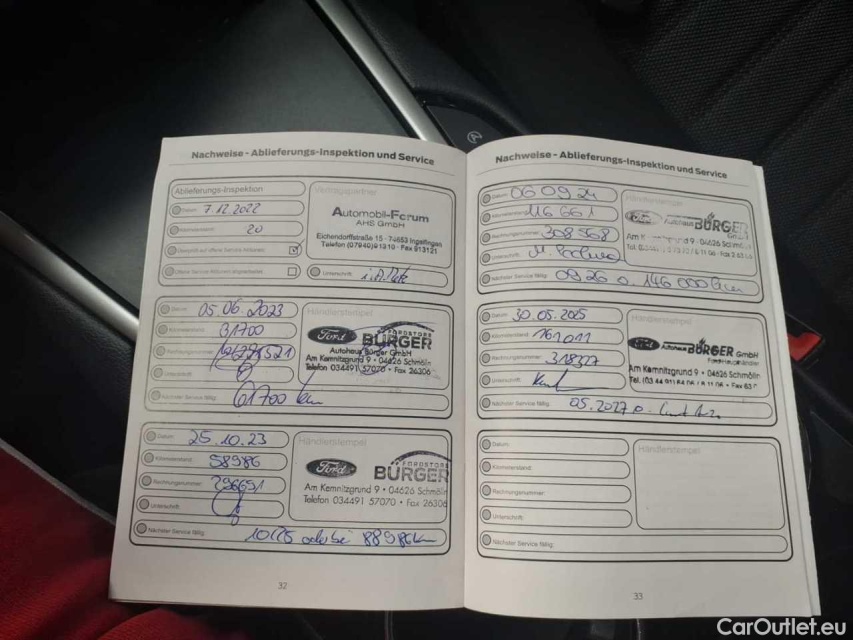 Nachweise - Ablieferungs-Inspektion und Service
Ablieferungs-Inspektion
Vertragspartner
Datum: 7.12.2022
Kilometerstand: 20
Unterschrift:
Automobil-Forum
AHS GmbH
Eichendorffstraße 15 · 74653 Ingelfingen
Telefon (07940)91310 · Fax 913121
Datum: 05.06.2023
Kilometerstand: 31700
Rechnungsnummer:
Unterschrift:
Nächster Service fällig:
61700 km
Händlerstempel
Ford FORDSTORE
BÜRGER
Autohaus Bürger GmbH
Am Kemnitzgrund 9 · 04626 Schmölln
Telefon 034491 57070 · Fax 26306
Datum: 25.10.23
Kilometerstand: 58986
Rechnungsnummer: 296651
Unterschrift:
Nächster Service fällig: 10/25 oder bei 88986 km
Händlerstempel
Ford FORDSTORE
BÜRGER
Am Kemnitzgrund 9 · 04626 Schmölln
Telefon 034491 57070 · Fax 26306
32
Nachweise - Ablieferungs-Inspektion und Service
Datum: 06.09.24
Kilometerstand: 116661
Rechnungsnummer: 308568
Unterschrift:
Nächster Service fällig: 09.26 o. 146 000 km
Händlerstempel
Ford Autohaus BÜRGER GmbH
Am K 9 · 04626 Schmölln
Datum: 30.05.2025
Kilometerstand: 161011
Rechnungsnummer: 318327
Unterschrift:
Nächster Service fällig: 05.2027 o.
Händlerstempel
Ford Autohaus BÜRGER GmbH
Am Kemnitzgrund 9 · 04626 Schmölln
Datum:
Kilometerstand:
Rechnungsnummer:
Unterschrift:
Nächster Service fällig:
Händlerstempel
33
CarOutlet.eu